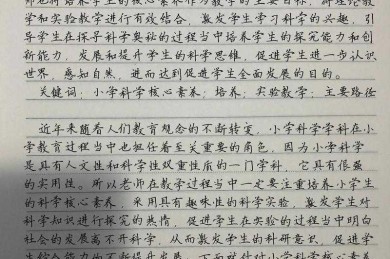 师必将培养学生的核心素养作为教学的主要目标，将理论教
学和实验教学进行有效结合，激发学生学习科学的兴趣，引
导学生在探寻科学奥秘的过程当中培养学生的探究能力和创
新能力，发展和提升学生的科学思维，促进学生进一步认识
世界，感知自然，进而达到促进学生全面发展的目的。
关键词：小学科学核心素养；培养；实验教学；主要路径
近年来随着人们教育观念的不断转变，小学科学学科在小
学教育过程当中也担任着至关重要的角色，因为小学科学
是具有人文性和科学性双重性质的一门学科，它具有很强
的实用性。所以老师在教学过程当中一定要注重培养小学生
的科学核心素养，采用具有趣味性的科学实验，激发学生对
科学知识进行探究的热情，促进学生在实验的过程当中明白
社会的发展离不开科学，从而激发学生的科研意识，促进学
生综合能力的不断提升发展。下面就针对小学科学核心素养